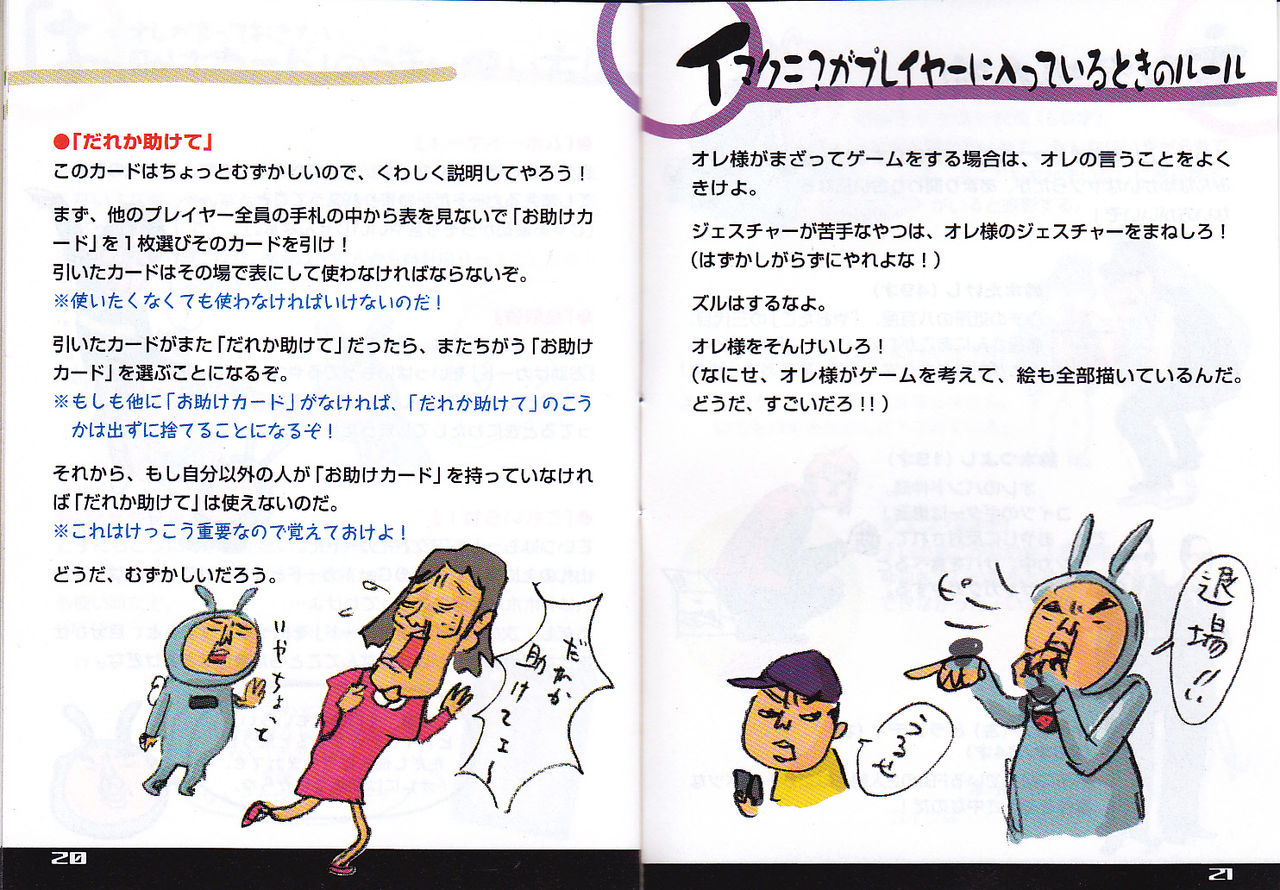 ●「だれか助けて」
このカードはちょっとむずかしいので、くわしく説明してやろう！
まず、他のプレイヤー全員の手札の中から表を見ないで「お助けカ
ード」を１枚選びそのカードを引け！
引いたカードはその場で表にして使わなければならないぞ。
※使いたくなくても使わなければいけないのだ！
引いたカードがまた「だれか助けて」だったら、またちがう「お助け
カード」を選ぶことになるぞ。
※もしも他に「お助けカード」がなければ、「だれか助けて」のこう
かは出ずに捨てることになるぞ！
それから、もし自分以外の人が「お助けカード」を持っていなけれ
ば「だれか助けて」は使えないのだ。
※これはけっこう重要なので覚えておけよ！
どうだ、むずかしいだろう。
いやちょっと
だれか
助けてェ〜
20
イマクニ？がプレイヤーに入っているときのルール
オレ様がまざってゲームをする場合は、オレの言うことをよく
きけよ。
ジェスチャーが苦手なやつは、オレ様のジェスチャーをまねしろ！
（はずかしがらずにやれよな！）
ズルはするなよ。
オレ様をそんけいしろ！
（なにせ、オレ様がゲームを考えて、絵も全部描いているんだ。
どうだ、すごいだろ!!）
ピー
退場!!
うるせ
21